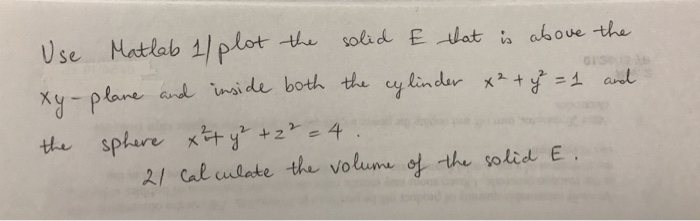 Use Matlab 1/ plot the solid E that is above the
xy-plane and inside both the cylinder x² + y² = 1 and
the sphere x² + y² + z² = 4 .
2/ Calculate the volume of the solid E .